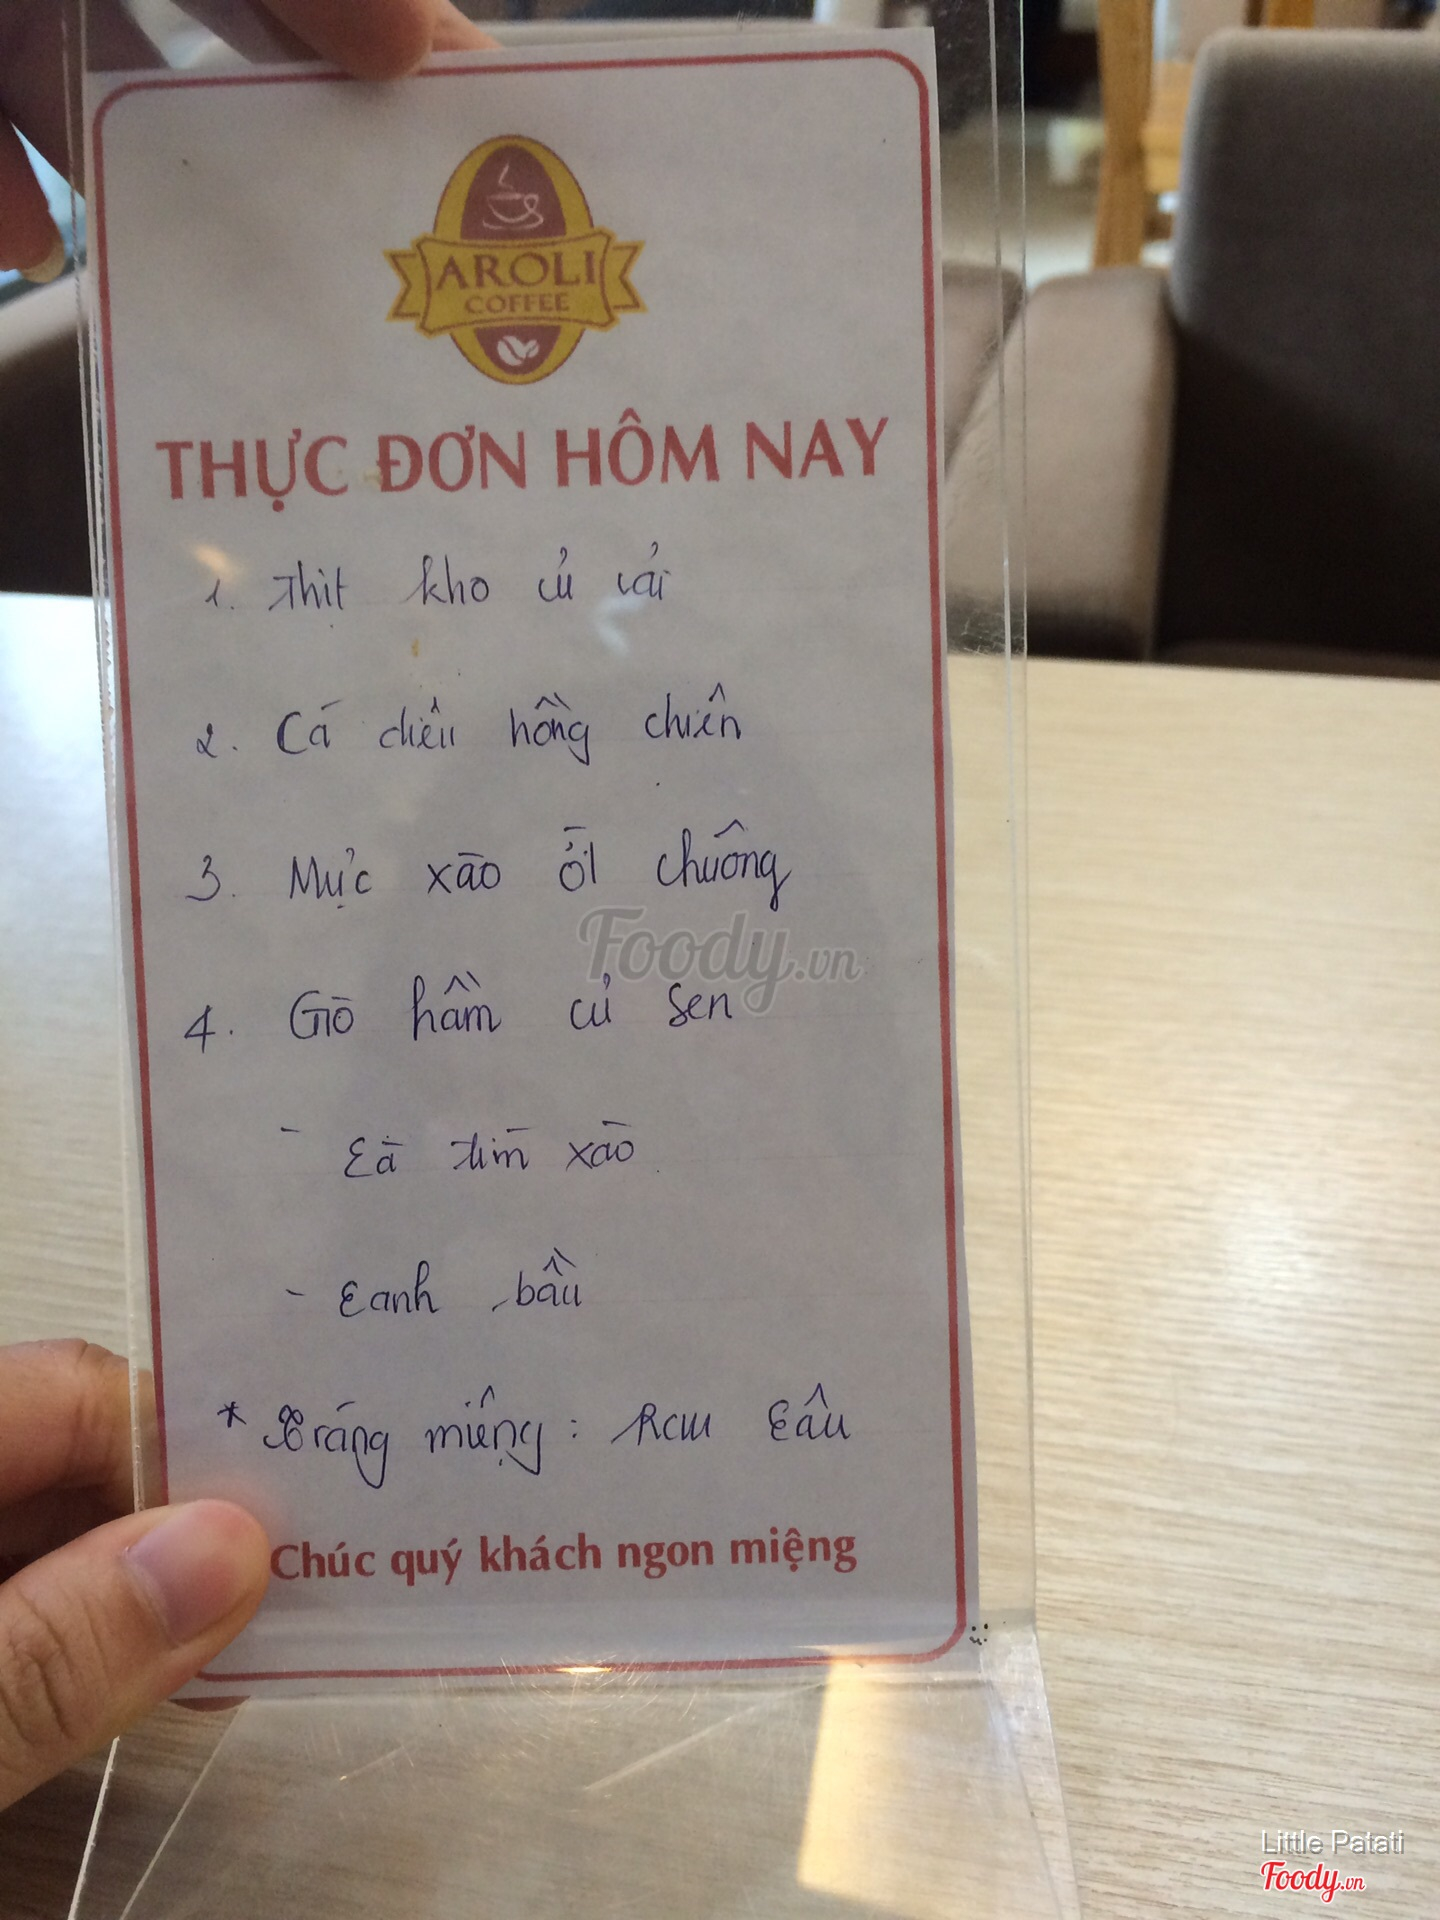 AROLI
COFFEE
THỰC ĐƠN HÔM NAY
1. Thịt kho củ cải
2. Cá diêu hồng chiên
3. Mực xào ớt chuông
4. Giò hầm củ sen
- Cà tím xào
- Canh bầu
* Tráng miệng: Rau câu
Chúc quý khách ngon miệng
Foody.vn
Little Patati
Foody.vn